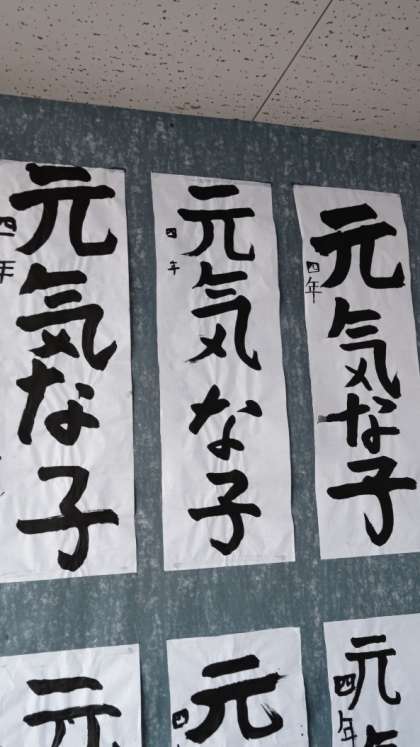 元気な子
四年
元気な子
四年
元気な子
四年
元
四年
元
四
元